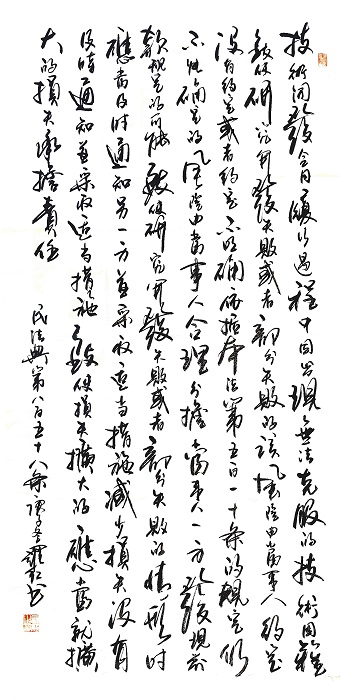 技術開發合同履行過程中因出現無法克服的技術困難
致使研究開發失敗或者部分失敗的該風險由當事人約定
没有約定或者約定不明確依據本法第五百一十条的規定仍
不能確定的風險由當事人合理分擔當事人一方發現前
款規定的可能致使研究開發失敗或者部分失敗的情形时
應當及时通知另一方並采取適當措施減少損失没有
及時通知並采取適當措施致使損失擴大的應當就擴
大的損失承擔責任
民法典第八百五十八条庚子